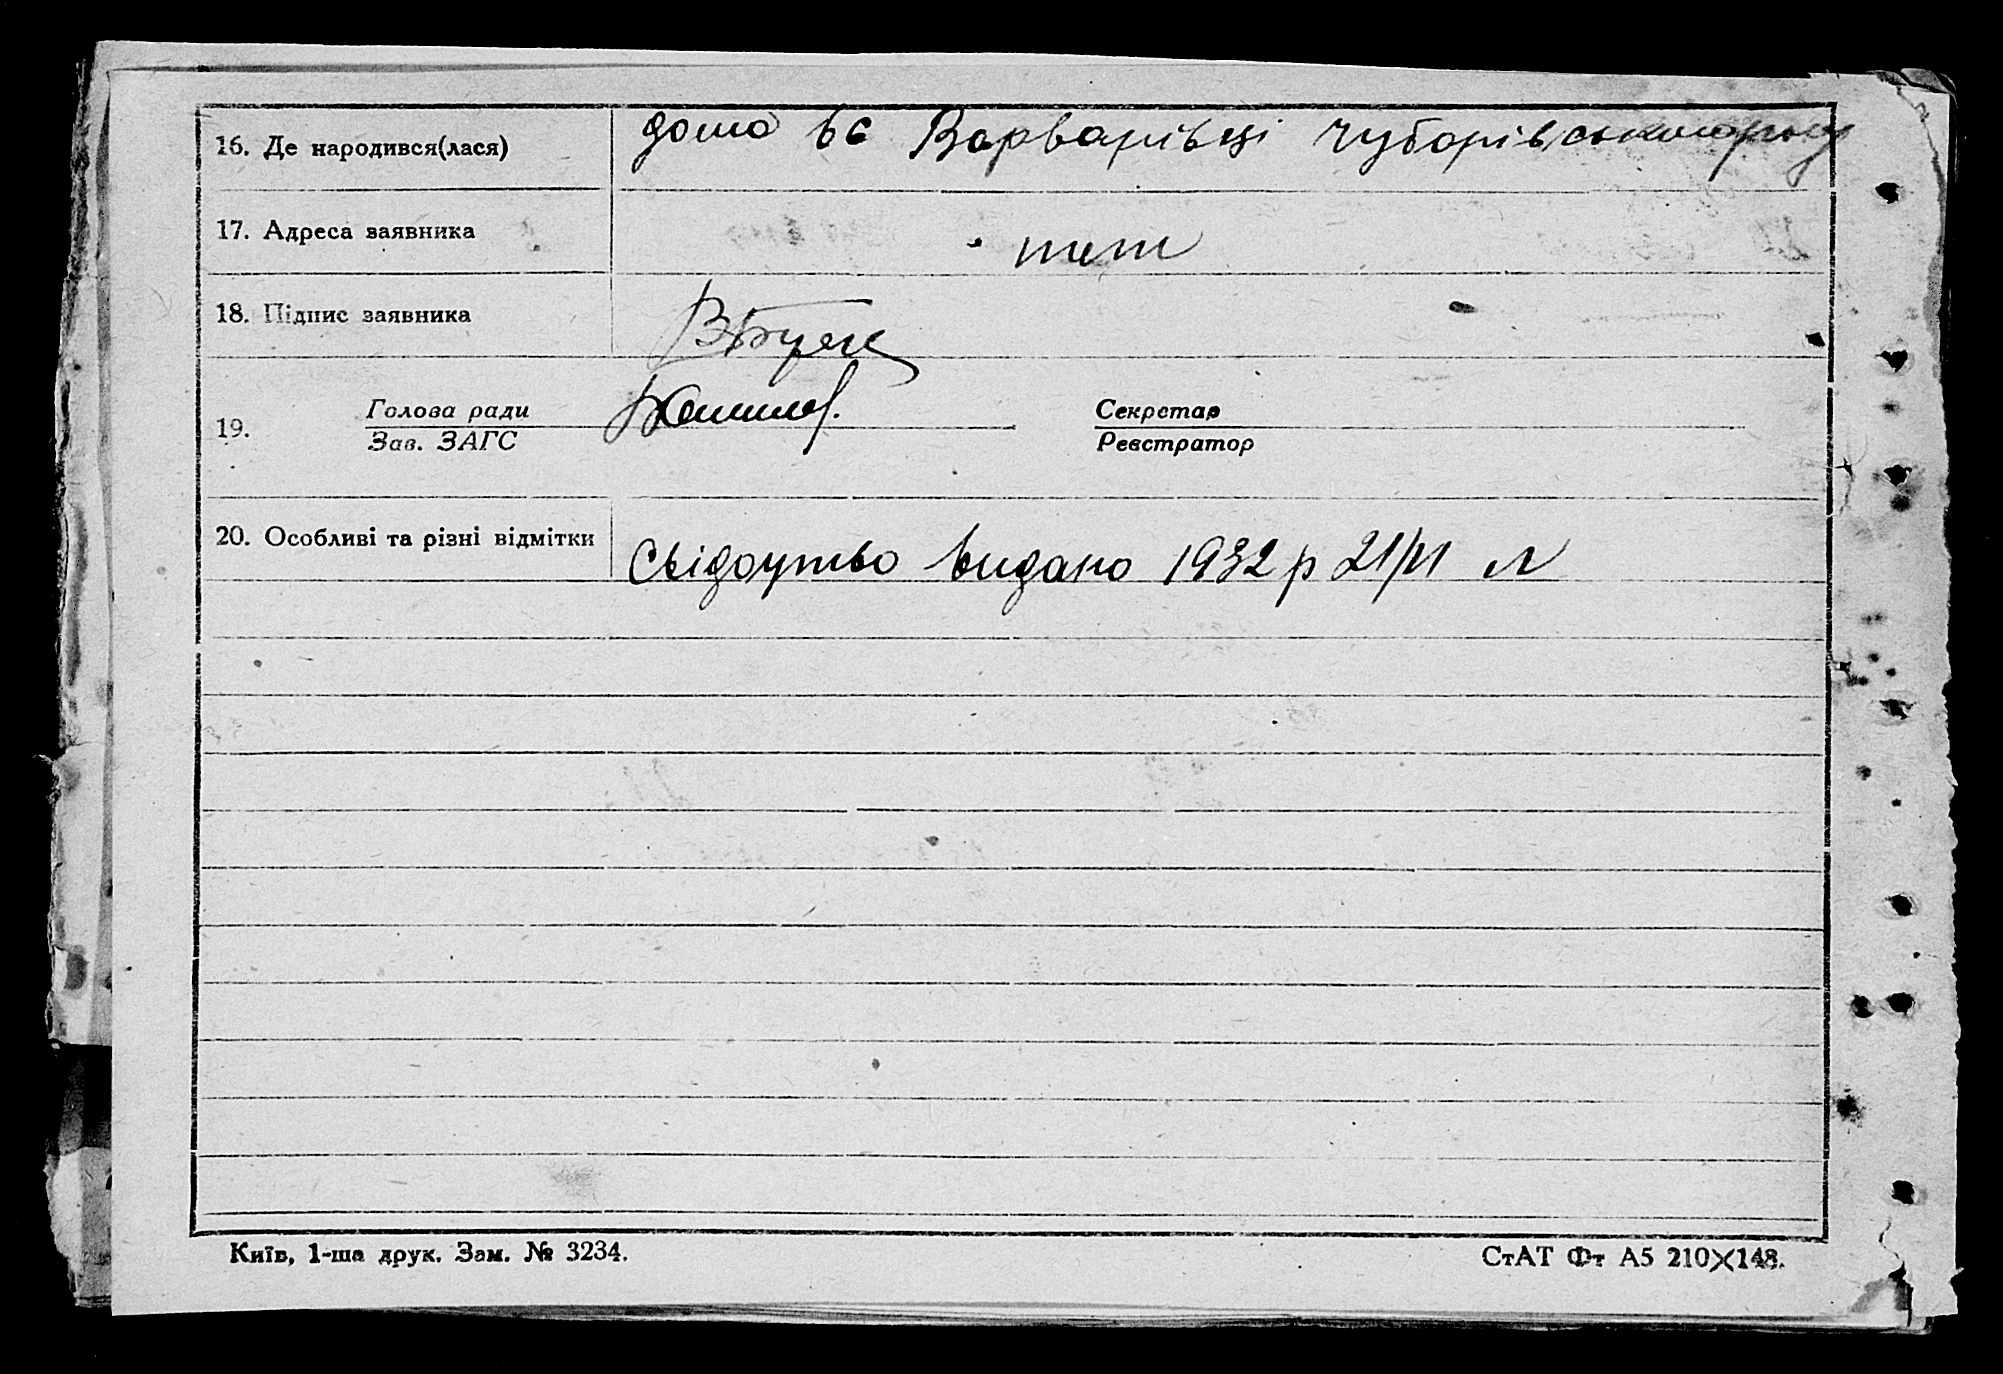 16. Де народився(лася) дома в с Варварівці Чубарівського р-ну
17. Адреса заявника теж
18. Підпис заявника
19. Голова ради Секретар
Зав. ЗАГС Реєстратор
20. Особливі та різні відмітки Свідоцтво видано 1932 р 21/VI
Київ, 1-ша друк. Зам. № 3234.
СтАТ Фт А5 210×148.